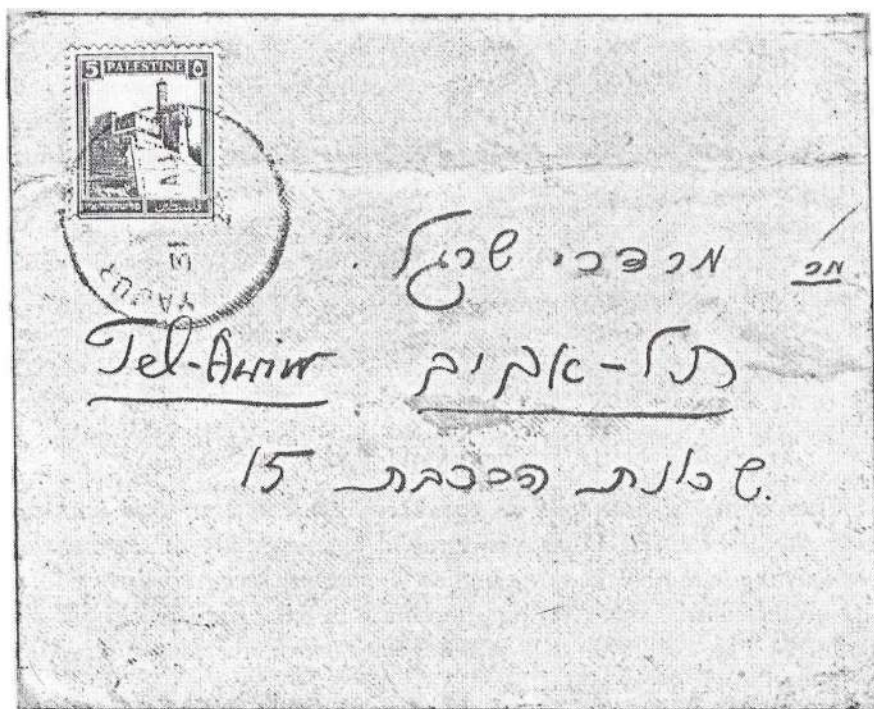 5 PALESTINE ٥
YAGUR
מר מרדכי שרגל
Tel-Awiw תל-אביב
שכונת הרכבת 15